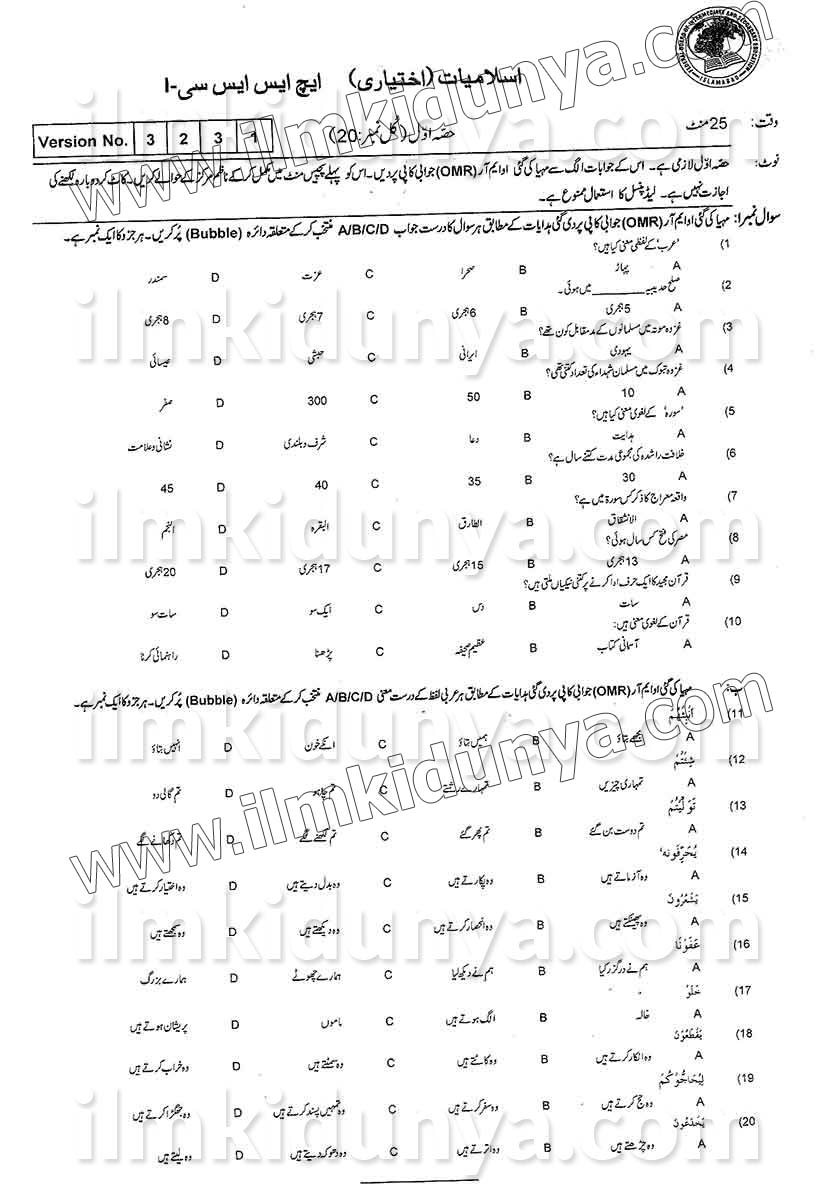 FEDERAL BOARD OF INTERMEDIATE AND SECONDARY EDUCATION
ISLAMABAD
اسلامیات (اختیاری) ایچ ایس ایس سی-I
وقت: 25 منٹ
حصّہ اوّل (کل نمبر: 20)
Version No. 3 2 3 1
نوٹ: حصّہ اوّل لازمی ہے۔ اس کے جوابات الگ سے مہیا کی گئی او ایم آر (OMR) جوابی کاپی پر دیں۔ اس کو پہلے پچیس منٹ میں مکمل کر کے ناظم مرکز کے حوالے کر دیں۔ کاٹ کر دوبارہ لکھنے کی
اجازت نہیں ہے۔ لیڈ پنسل کا استعمال ممنوع ہے۔
سوال نمبر ا: مہیا کی گئی او ایم آر (OMR) جوابی کاپی پر دی گئی ہدایات کے مطابق ہر سوال کا درست جواب A/B/C/D منتخب کر کے متعلقہ دائرہ (Bubble) پُر کریں۔ ہر جزو کا ایک نمبر ہے۔
(1 'عرب' کے لفظی معنی کیا ہیں؟
A پہاڑ B صحرا C عزت D سمندر
(2 صلح حدیبیہ ________ میں ہوئی۔
A 5 ہجری B 6 ہجری C 7 ہجری D 8 ہجری
(3 غزوہ موتہ میں مسلمانوں کے مد مقابل کون تھے؟
A یہودی B ایرانی C حبشی D عیسائی
(4 غزوہ تبوک میں مسلمان شہداء کی تعداد کتنی تھی؟
A 10 B 50 C 300 D صفر
(5 'سورہ' کے لغوی معنی کیا ہیں؟
A ہدایت B دعا C شرف و بلندی D نشانی و علامت
(6 خلافت راشدہ کی مجموعی مدت کتنے سال ہے؟
A 30 B 35 C 40 D 45
(7 واقعہ معراج کا ذکر کس سورۃ میں ہے؟
A الانشقاق B الطارق C البقرہ D النجم
(8 مصر کی فتح کس سال ہوئی؟
A 13 ہجری B 15 ہجری C 17 ہجری D 20 ہجری
(9 قرآن مجید کا ایک حرف ادا کرنے پر کتنی نیکیاں ملتی ہیں؟
A سات B دس C ایک سو D سات سو
(10 قرآن کے لغوی معنی ہیں:
A آسمانی کتاب B عظیم صحیفہ C پڑھنا D راہنمائی کرنا
مہیا کی گئی او ایم آر (OMR) جوابی کاپی پر دی گئی ہدایات کے مطابق ہر عربی لفظ کے درست معنی A/B/C/D منتخب کر کے متعلقہ دائرہ (Bubble) پُر کریں۔ ہر جزو کا ایک نمبر ہے۔
(11
A مجھے بتاؤ B ہمیں بتاؤ C انکے خون D انہیں بتاؤ
(12 شِئْتُمْ
A تمہاری چیزیں B تمہارے رشتے C تم چاہو D تم گالی دو
(13 تَوَلَّيْتُمْ
A تم دوست بن گئے B تم پھر گئے C تم لکھنے لگے D تم دکھانے لگے
(14 يُحَرِّفُونَه'
A وہ آزماتے ہیں B وہ پکارتے ہیں C وہ بدل دیتے ہیں D وہ اختیار کرتے ہیں
(15 يَشْعُرُونَ
A وہ پھینکتے ہیں B وہ انحصار کرتے ہیں C وہ دیکھتے ہیں D وہ سمجھتے ہیں
(16 عَفَوْنَا
A ہم نے درگزر کیا B ہم نے دیکھ لیا C ہمارے چھوٹے D ہمارے بزرگ
(17 خَلَوْ
A خالہ B الگ ہوتے ہیں C ماموں D پریشان ہوتے ہیں
(18 يَقْطَعُوْنَ
A وہ انکار کرتے ہیں B وہ کاٹتے ہیں C وہ سمٹتے ہیں D وہ خراب کرتے ہیں
(19 لِيُحَاجُّوْكُمْ
A وہ حج کرتے ہیں B وہ سفر کرتے ہیں C وہ تمہیں پسند کرتے ہیں D وہ جھگڑا کرتے ہیں
(20 يَخْدَعُونَ
A وہ چڑھتے ہیں B وہ اترتے ہیں C وہ دھوکہ دیتے ہیں D وہ لیتے ہیں
www.ilmkidunya.com
ilmkidunya.com
ilmkidunya.com
ilmkidunya.com
ilmkidunya.com
www.ilmkidunya.com
ilmkidunya.com
ilmkidunya.com
ilmkidunya.com